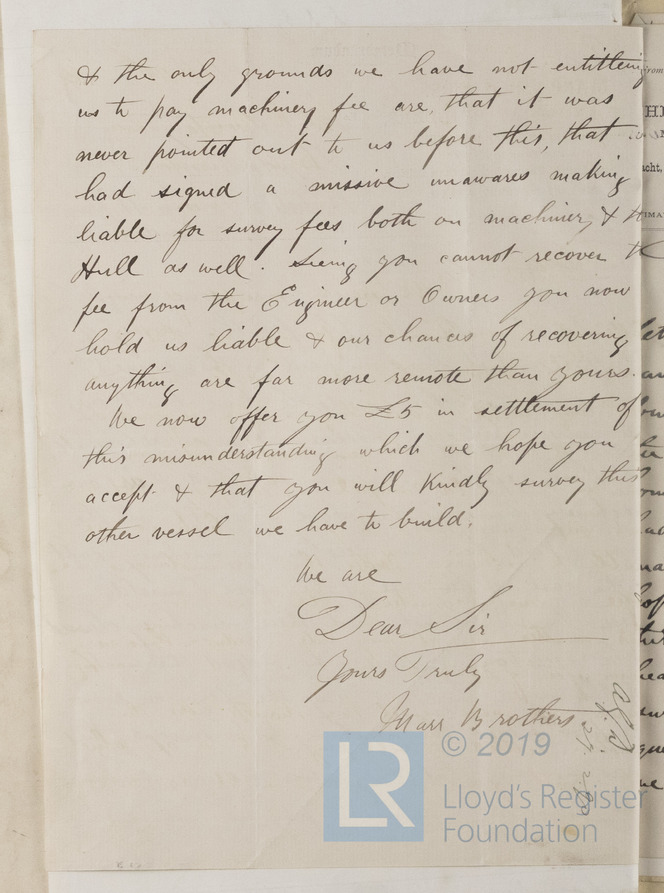 & the only grounds we have not entitleing
us to pay machinery fee are, that it was
never pointed out to us before this, that
had signed a missive unawares making
liable for survey fees both on machinery &
Hull as well. Seeing you cannot recover
fee from the Engineer or Owners you now
hold us liable & our chances of recovering
anything are far more remote than yours.
We now offer you £5 in settlement of
this misunderstanding which we hope you
accept & that you will Kindly survey this
other vessel we have to build.
We are
Dear Sir
Yours Truly
Marr Brothers
© 2019
LR
Lloyd's Register
Foundation